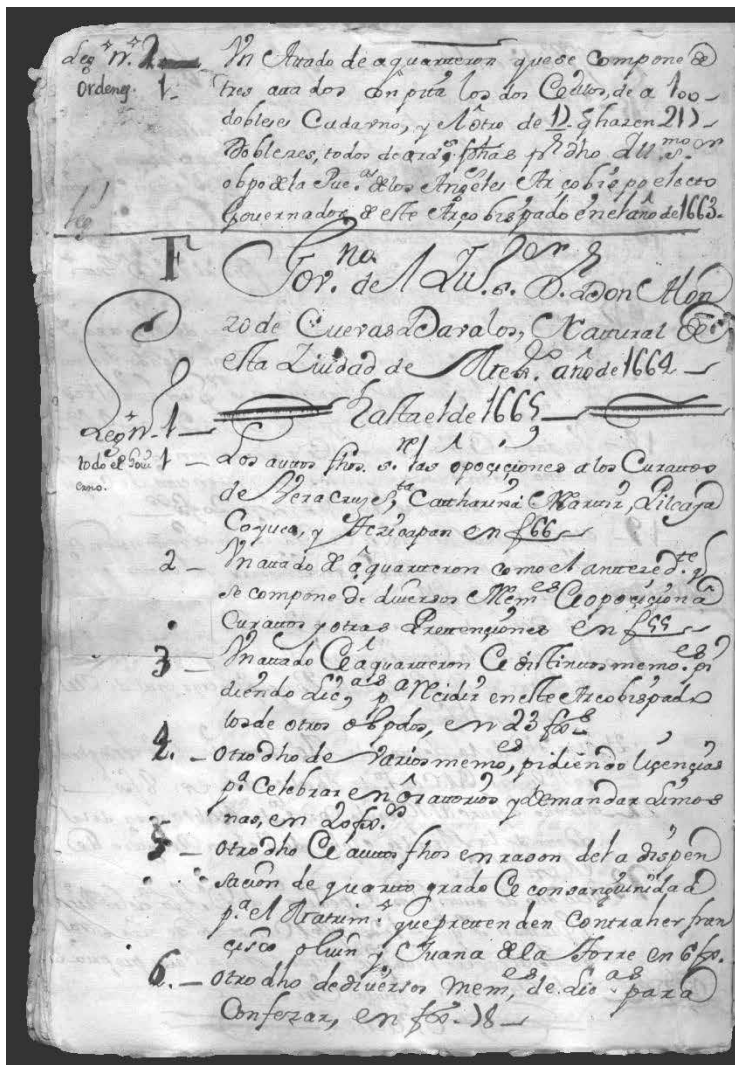 Leg.º n.º 2 — Vn Atado de a quarteron que se compone de
Ordeng. 1 — tres atados con pita los dos Cellos, de a 100 —
dobleses Cada vno, y el otro de 12. q hazen 212 —
Dobleses, todos de ord.s fhas p.r dho Ill.mo s.or
obpo de la Pue.a de los Angeles Arçobispo electo
Governador de este Arçobispado en el año de 1663.
F
Gov.no de el Ill.mo s.or D.r Don Alon
zo de Cuevas Davalos, Natural de
esta Ziudad de Mex.co año de 1664 —
hasta el de 1665 —
Leg.º n.º 1 —
todo el Govi
erno.
1 — Los auttos fhos s.re las opociciones a los Curattos
de Vera Cruz, S.ta Catharina Martir, Pilcaya
Coyuca, y en f 66 —
2 — Vn attado de a quarteron como el antezed.te q
se compone de diversos Mem.es de opocicion a
Curattos y otras Pretenciones en f 55 —
3 — Vn attado de a quarteron de distintos memo.es pi
diendo Lic.as p.a Recidir en este Arcobispado
los de otros obpdos, en 23 fox.s
4. — otro dho de Varios memo.es, pidiendo liçencias
p.a Celebrar en Oratorios y demandar Limos
nas, en 20 fox.s
5 — otro dho de auttos fhos en rason de la dispen
sacion de quarto grado de consanguinidad
p.a el Matrim.º que pretenden Contraher fran
çisco olvin y Juana de la Torre en 6 fox.
6. — otro dho de diversos Mem.es, de Lic.as para
Confezar, en fox. 18 —